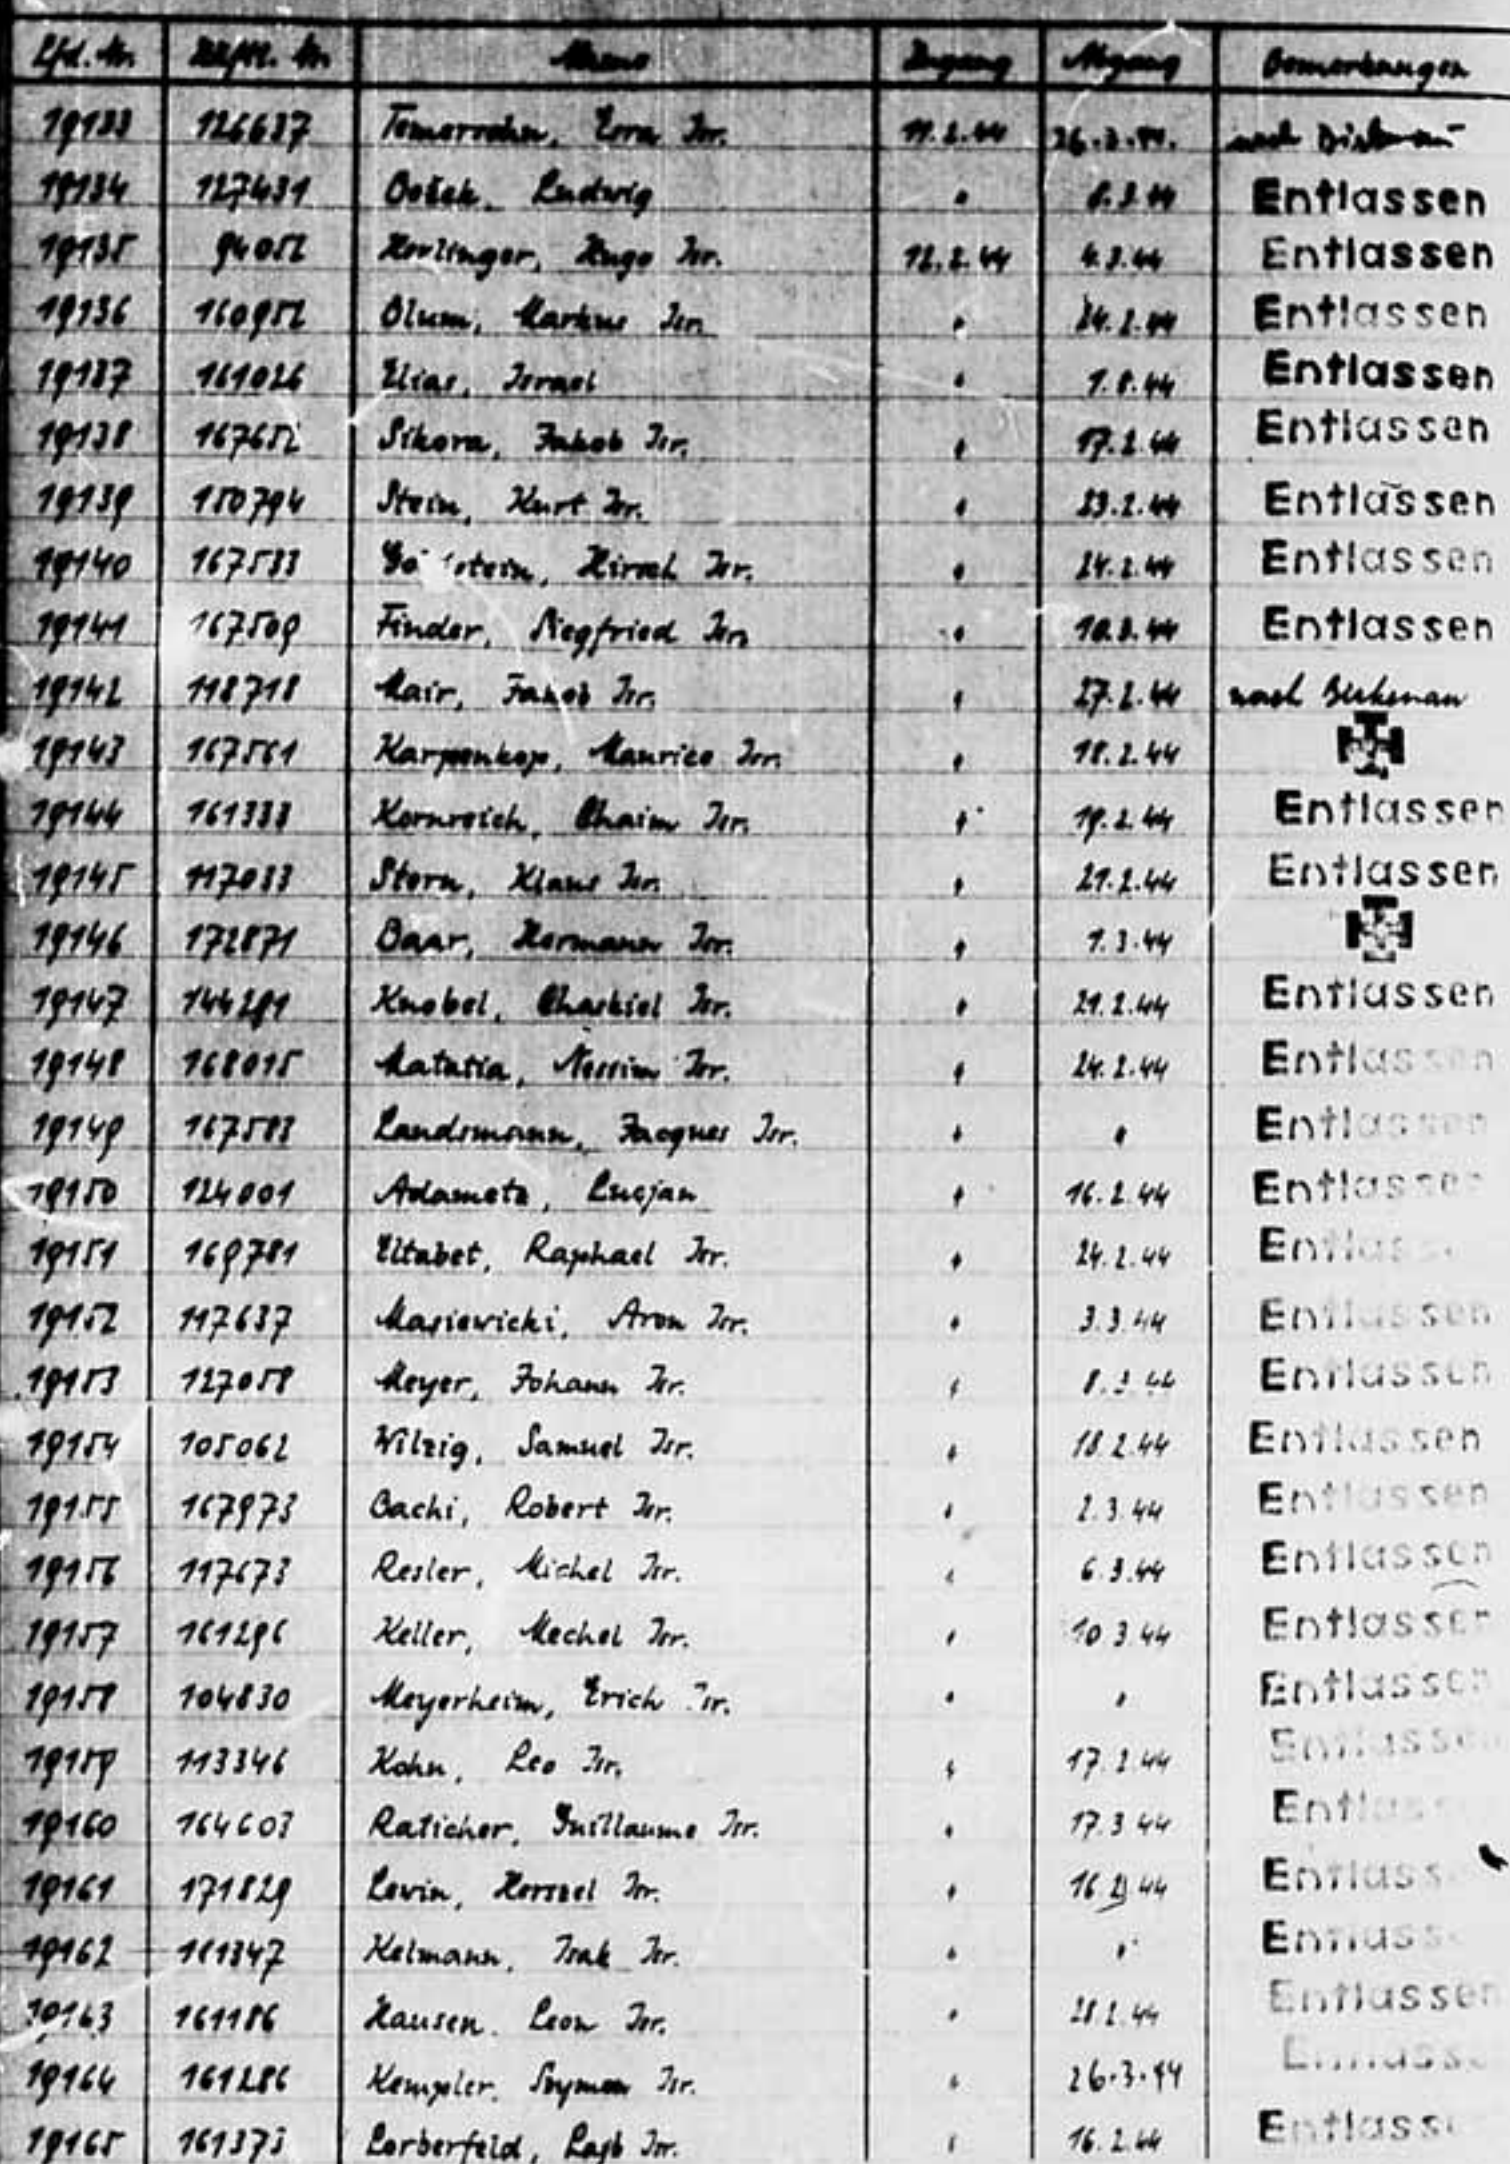 Lfd. Nr. Häftl. Nr. Name Zugang Abgang Bemerkungen
19133 126637 Isr. 11.2.44 26.2.44. nach Birkenau
19134 127431 Ludwig " 8.3.44 Entlassen
19135 94052 Hugo Isr. 12.2.44 4.3.44 Entlassen
19136 160952 Blum, Markus Isr. " 24.2.44 Entlassen
19137 161026 Elias, Israel " 1.8.44 Entlassen
19138 167652 Sikora, Jakob Isr. " 17.2.44 Entlassen
19139 150794 Stein, Kurt Isr. " 23.2.44 Entlassen
19140 167533 Hirsch Isr. " 24.2.44 Entlassen
19141 167509 Finder, Siegfried Isr. " 10.3.44 Entlassen
19142 118718 Mair, Jakob Isr. " 27.2.44 nach Birkenau
19143 167561 Karpenkop, Maurice Isr. " 18.2.44
19144 161333 Kornreich, Chaim Isr. " 19.2.44 Entlassen
19145 117033 Stern, Klaus Isr. " 21.2.44 Entlassen
19146 172871 Baar, Hermann Isr. " 1.3.44
19147 144291 Knobel, Chaskiel Isr. " 21.2.44 Entlassen
19148 168015 Matatia, Nessim Isr. " 24.2.44 Entlassen
19149 167583 Landsmann, Jacques Isr. " " Entlassen
19150 124001 Adametz, Lucjan " 16.2.44 Entlassen
19151 169781 Eltabet, Raphael Isr. " 24.2.44 Entlassen
19152 117637 Masiewicki, Aron Isr. " 3.3.44 Entlassen
19153 127058 Meyer, Johann Isr. " 8.3.44 Entlassen
19154 105062 Wilzig, Samuel Isr. " 18.2.44 Entlassen
19155 167973 Bachi, Robert Isr. " 2.3.44 Entlassen
19156 117673 Resler, Michel Isr. " 6.3.44 Entlassen
19157 161296 Keller, Mechel Isr. " 10.3.44 Entlassen
19158 104830 Meyerheim, Erich Isr. " " Entlassen
19159 113346 Kohn, Leo Isr. " 17.2.44 Entlassen
19160 164603 Raticher, Guillaume Isr. " 17.3.44 Entlassen
19161 171829 Lewin, Herszel Isr. " 16.2.44 Entlassen
19162 161347 Kelmann, Isak Isr. " " Entlassen
19163 161186 Hausen, Leon Isr. " 28.2.44 Entlassen
19164 161286 Kempler, Szymon Isr. " 26.3.44 Entlassen
19165 161373 Lorberfeld, Lajb Isr. " 16.2.44 Entlassen